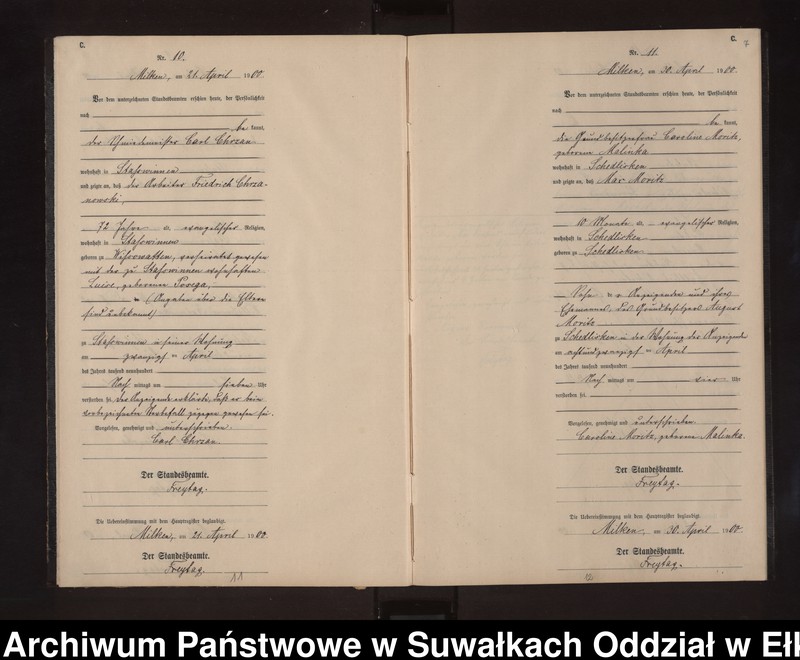 C.
Nr. 10.
Milken, am 21. April 1900.
Vor dem unterzeichneten Standesbeamten erschien heute, der Persönlichkeit
nach
be kannt,
der Schmiedemeister Carl Chrzan
wohnhaft in Stasswinnen
und zeigte an, daß der Arbeiter Friedrich Chrza-
nowski,
72 Jahre evangelischer Religion,
wohnhaft in Stasswinnen
geboren zu verheiratet gewesen
mit der zu Stasswinnen wohnhaften
Luise, geborenen
(Angaben über die Eltern
sind unbekannt)
zu Stasswinnen in seiner Wohnung
am zwanzigsten April
des Jahres tausend neunhundert
Nachmittags um sieben Uhr
verstorben sei. Der Anzeigende erklärte, daß er beim
vorbezeichneten Sterbefall zugegen gewesen sei.
Vorgelesen, genehmigt und unterschrieben.
Carl Chrzan
Der Standesbeamte.
Freytag.
Die Uebereinstimmung mit dem Hauptregister beglaubigt.
Milken, am 21. April 1900
Der Standesbeamte.
Freytag.
11
C.
7
Nr. 11.
Milken, am 30. April 1900.
Vor dem unterzeichneten Standesbeamten erschien heute, der Persönlichkeit
nach
be kannt,
die Grundbesitzerfrau Caroline Moritz,
geborene Malinka
wohnhaft in Schedlisken
und zeigte an, daß Max Moritz
10 Monate evangelischer Religion,
wohnhaft in Schedlisken
geboren zu Schedlisken
Sohn der Anzeigenden und ihres
Ehemannes, des Grundbesitzers August
Moritz
zu Schedlisken in der Wohnung der Anzeigenden
am achtundzwanzigsten April
des Jahres tausend neunhundert
Nachmittags um vier Uhr
verstorben sei.
Vorgelesen, genehmigt und unterschrieben
Caroline Moritz, geborene Malinka.
Der Standesbeamte.
Freytag.
Die Uebereinstimmung mit dem Hauptregister beglaubigt.
Milken, am 30. April 1900
Der Standesbeamte.
Freytag.
Archiwum Państwowe w Suwałkach Oddział w Ełk